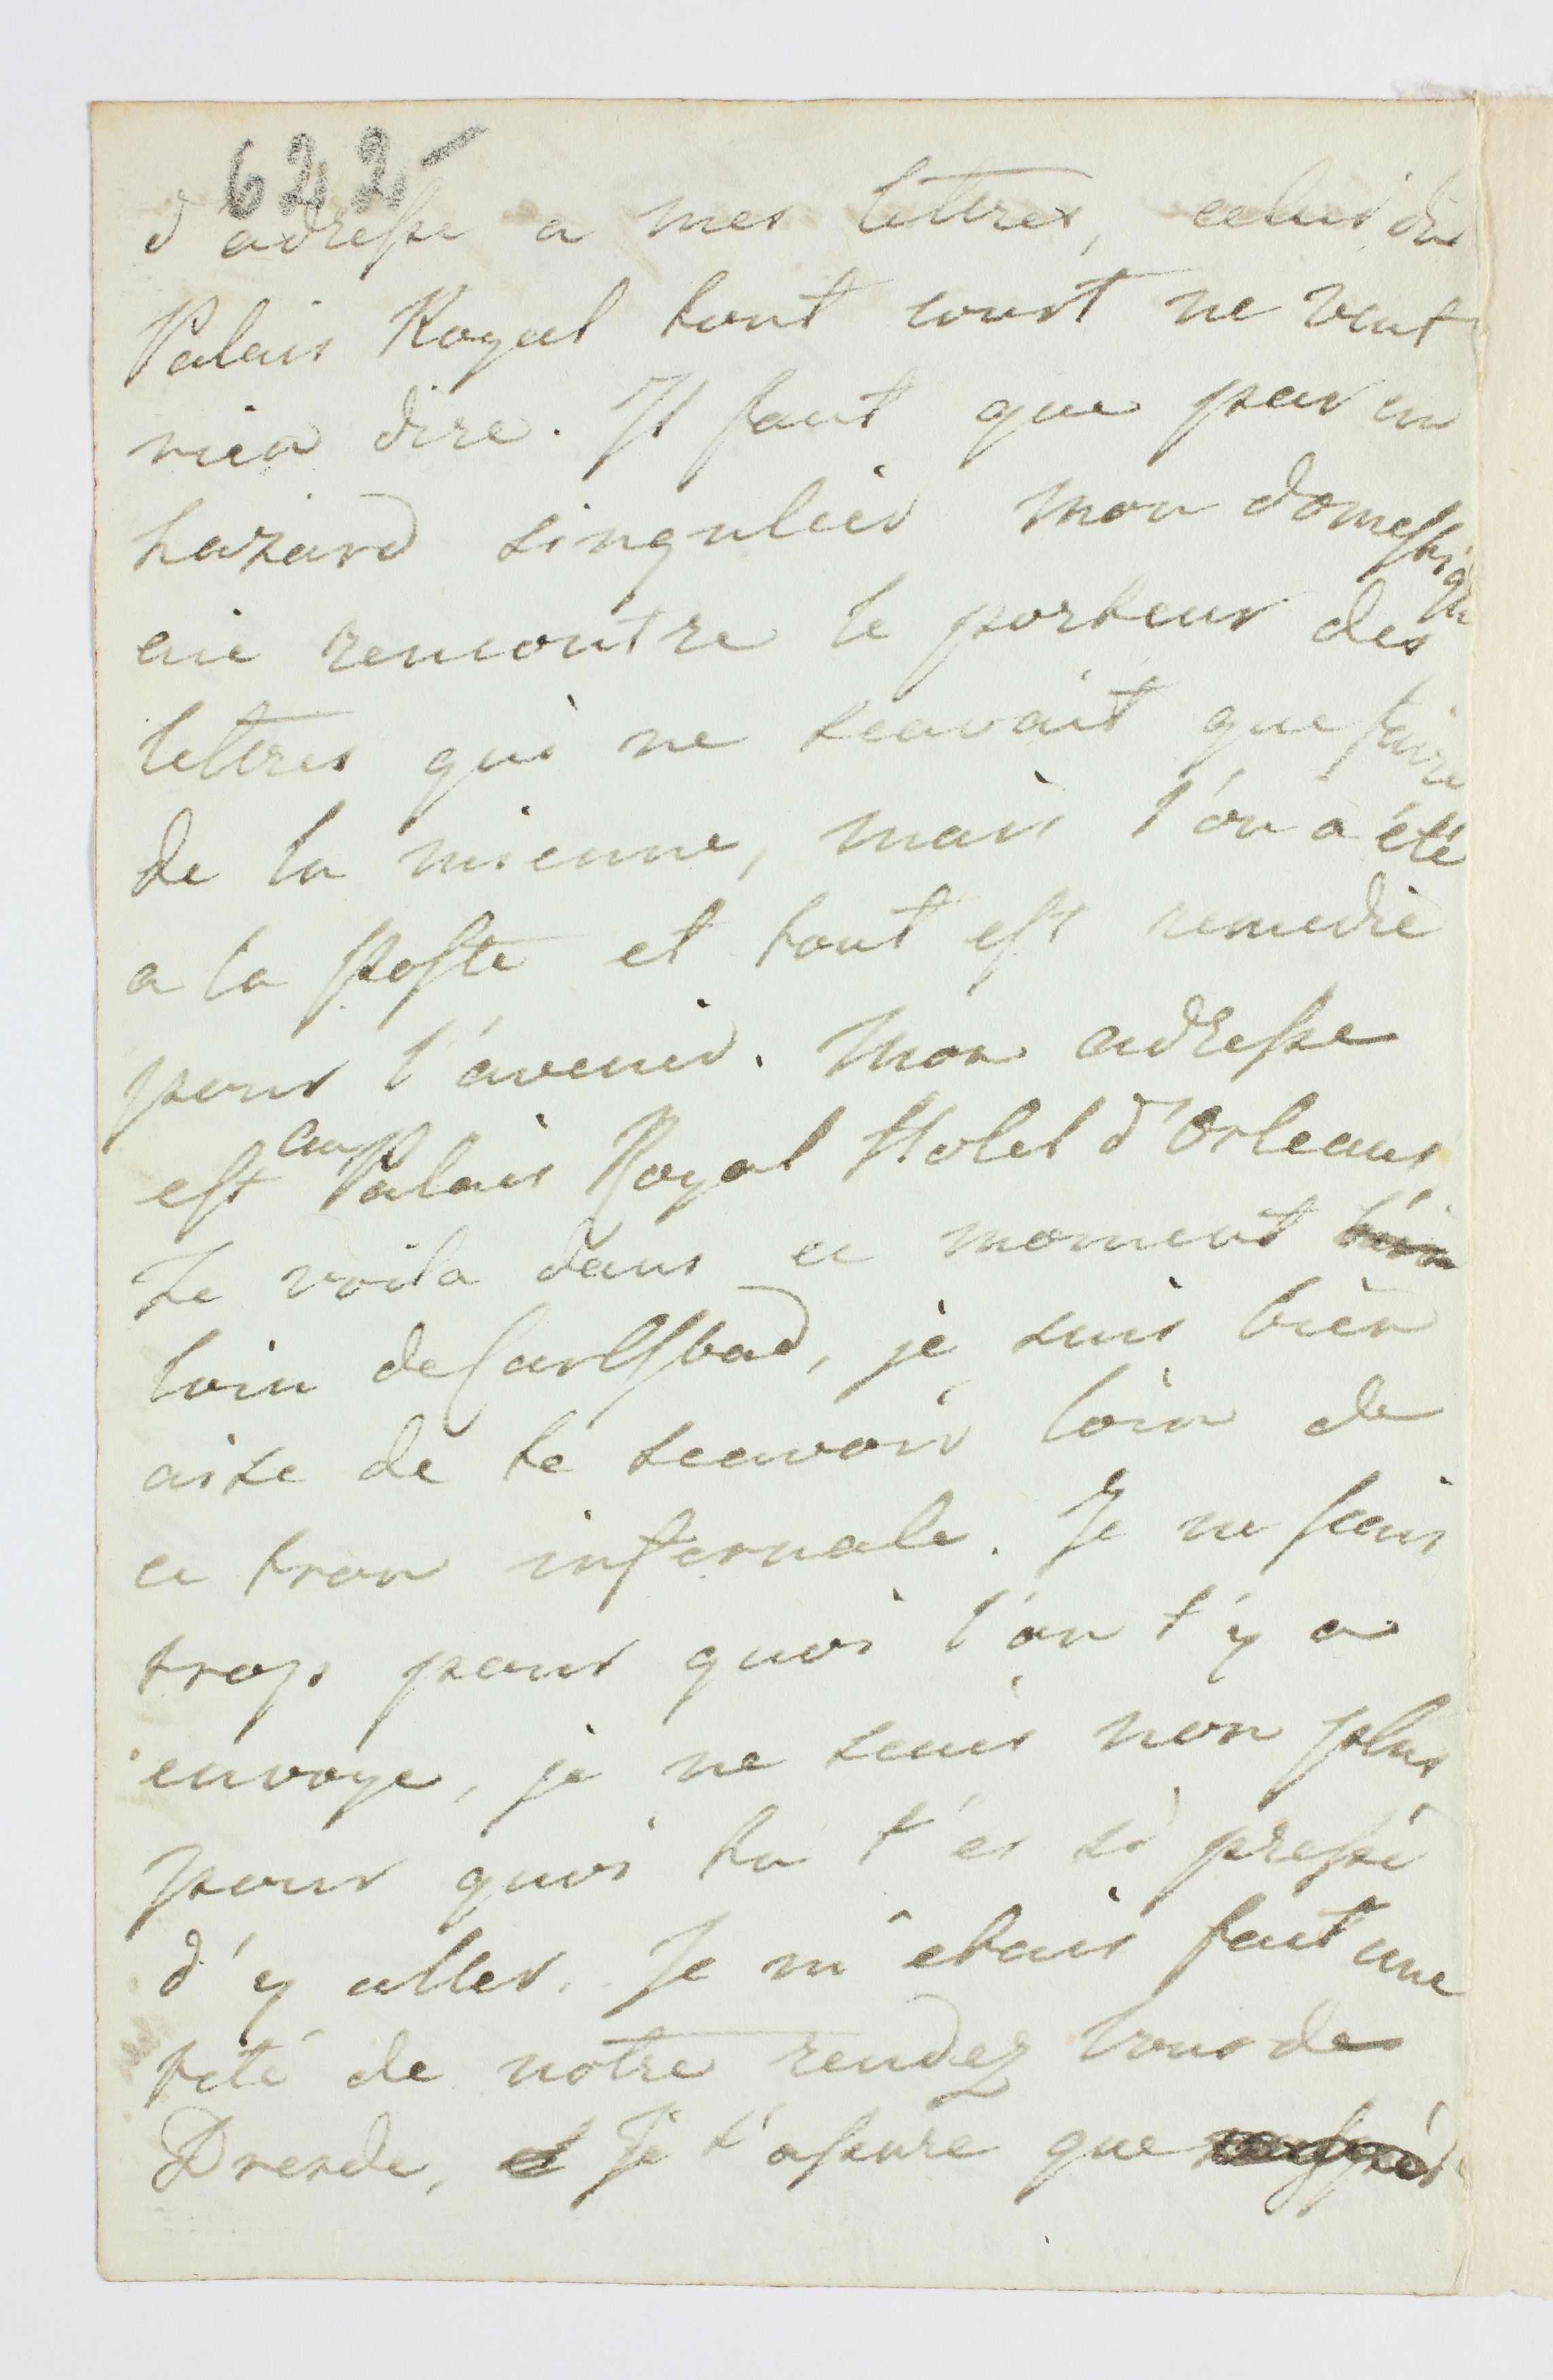 622
d'adresse a mes lettres, celui du
Palais Royal tout court ne veut
rien dire. Il faut que par un
hazard singulier mon domestique
aie rencontre le porteur des
lettres qui ne scavait que faire
de la mienne, mais l'on a été
a la poste et tout est remedié
pour l'avenir. Mon adresse
est au Palais Royal Hotel d'Orleans
Te voila dans ce moment bien
loin de Carlsbad, je suis bien
aise de te scavoir loin de
ce trou infernale. Je ne sais
trop pour quoi l'on t'y a
envoye, je ne sais non plus
pour quoi tu t'es si pressé
d'y aller. Je m'etais fait une
feté de notre rendez vous de
Dresde, et Je t'assure que